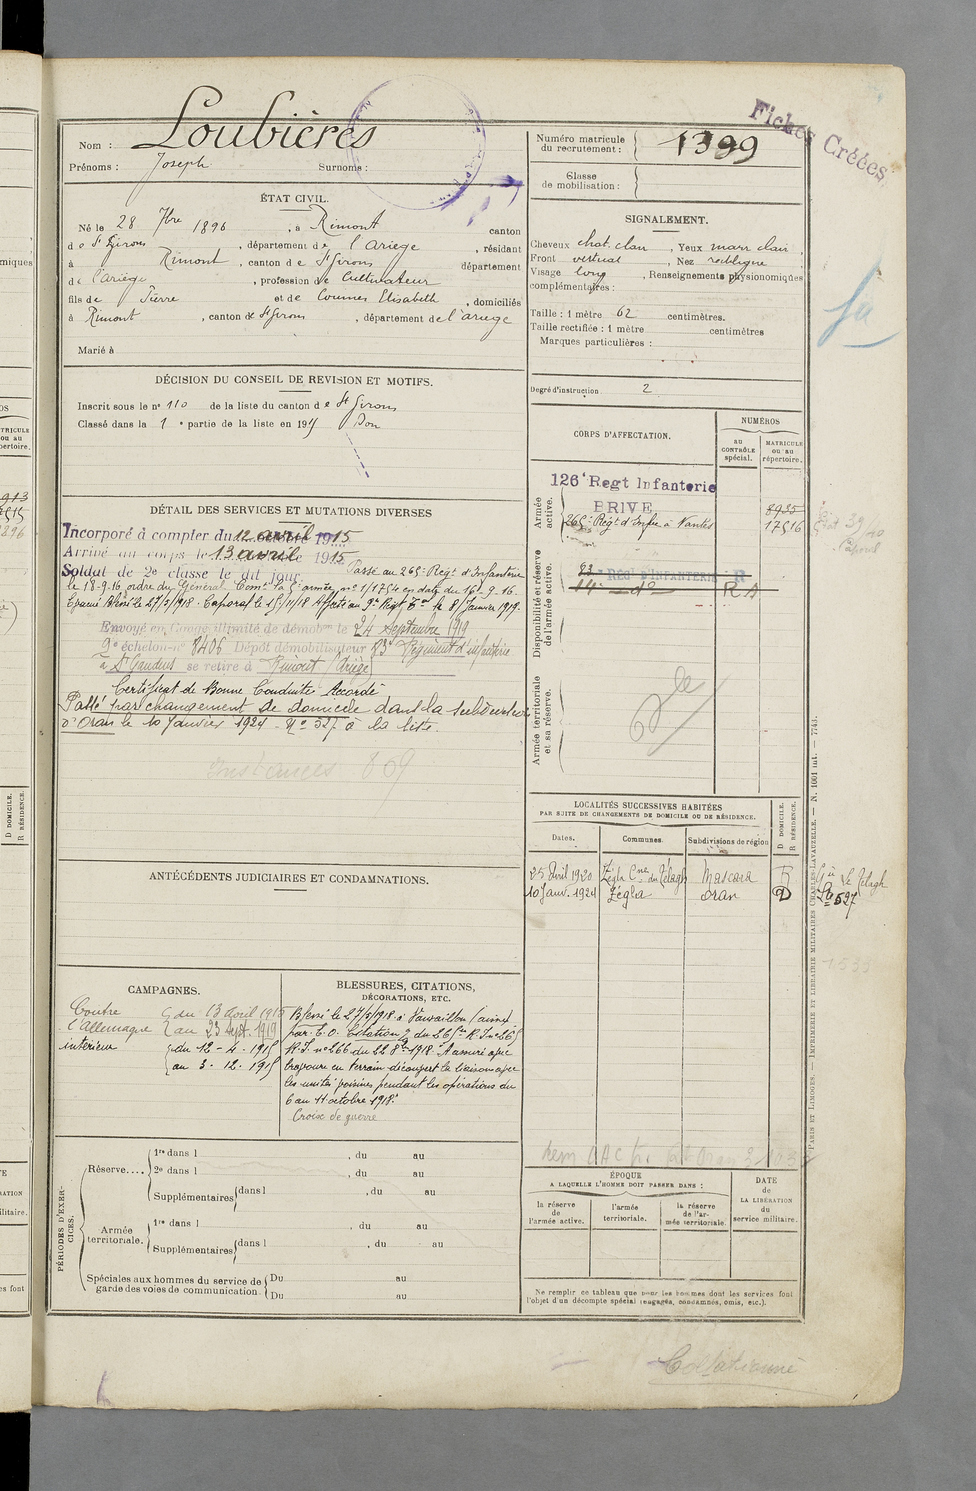 Fiches Créées
Nom : Loubières
Prénoms : Joseph Surnoms :
Numéro matricule du recrutement : 1399
Classe de mobilisation :
ÉTAT CIVIL.
Né le 28 7bre 1896, à Rimont canton
de St Girons, département de l'Ariège, résidant
à Rimont, canton de St Girons département
de l'Ariège, profession de Cultivateur
fils de Pierre et de Coumes Elisabeth, domiciliés
à Rimont, canton de St Girons, département de l'ariège
Marié à
SIGNALEMENT.
Cheveux chat. clair, Yeux marr clair
Front vertical, Nez rectiligne
Visage long, Renseignements physionomiques
complémentaires :
Taille : 1 mètre 62 centimètres.
Taille rectifiée : 1 mètre centimètres
Marques particulières :
Degré d'instruction 2
DÉCISION DU CONSEIL DE REVISION ET MOTIFS.
Inscrit sous le no 110 de la liste du canton de St Girons
Classé dans la 1e partie de la liste en 1915 Bon
CORPS D'AFFECTATION.
NUMÉROS
AU CONTRÔLE spécial.
MATRICULE ou au répertoire.
Armée active.
126e Regt Infanterie
BRIVE 8935
265e Régt d'Infie à Nantes 17516
Disponibilité et réserve de l'armée active.
83 REGt D'INFANTERIE R
14e do R A
Armée territoriale et sa réserve.
DÉTAIL DES SERVICES ET MUTATIONS DIVERSES
Incorporé à compter du 12 avril 1915
Arrivé au corps le 13 avril 1915
Soldat de 2e classe le dit jour. Passé au 265e Régt d'Infanterie
le 18-9-16 ordre du Général Comt la 5e armée no 1/1754 en date du 16-9-16.
Evacué blessé le 27/5/1918. Caporal le 15/11/18 Affecté au 9e Régt le 8 Janvier 1919.
Envoyé en Congé illimité de démobon le 24 Septembre 1919
9e échelon no 8406 Dépôt démobilisateur 83 Régiment d'infanterie
à St Gaudens se retire à Rimont (Ariège)
Certificat de Bonne Conduite Accordé
Passé par changement de domicile dans la subdivision
d'Oran le 10 Janvier 1924 - No 527 à la liste.
Instances 809
ANTÉCÉDENTS JUDICIAIRES ET CONDAMNATIONS.
LOCALITÉS SUCCESSIVES HABITÉES
PAR SUITE DE CHANGEMENTS DE DOMICILE OU DE RÉSIDENCE.
Dates. Communes. Subdivisions de région
D DOMICILE.
R RÉSIDENCE.
25 Avril 1920 Zégla Cne du Télagh Mascara R
10 Janv. 1924 Zégla Oran D
le Télagh
527
CAMPAGNES.
Contre du 13 avril 1915
l'Allemagne au 23 sept. 1919
intérieur du 12-4-1915
au 3-12-1915
BLESSURES, CITATIONS,
DÉCORATIONS, ETC.
Blessé le 27/5/1918 à Vauxaillon (aisne)
par E.O. Citation du 265e R.I no 265
R.I. no 266 du 22 8bre 1918. A assuré avec
bravoure en terrain découvert la liaison avec
les unités voisines pendant les opérations du
6 au 11 octobre 1918.
Croix de guerre
PÉRIODES D'EXERCICES.
Réserve....
1re dans l , du au
2e dans l , du au
Supplémentaires dans l , du au
Armée territoriale.
1re dans l , du au
Supplémentaires dans l , du au
Spéciales aux hommes du service de garde des voies de communication.
Du au
Du au
ÉPOQUE
A LAQUELLE L'HOMME DOIT PASSER DANS :
la réserve de l'armée active.
l'armée territoriale.
la réserve de l'armée territoriale.
DATE de LA LIBÉRATION du service militaire.
Ne remplir ce tableau que pour les hommes dont les services font
l'objet d'un décompte spécial (engagés, condamnés, omis, etc.).
PARIS ET LIMOGES. — IMPRIMERIE ET LIBRAIRIE MILITAIRES CHARLES-LAVAUZELLE. — N. 1001 int. — 7743.
Collationné